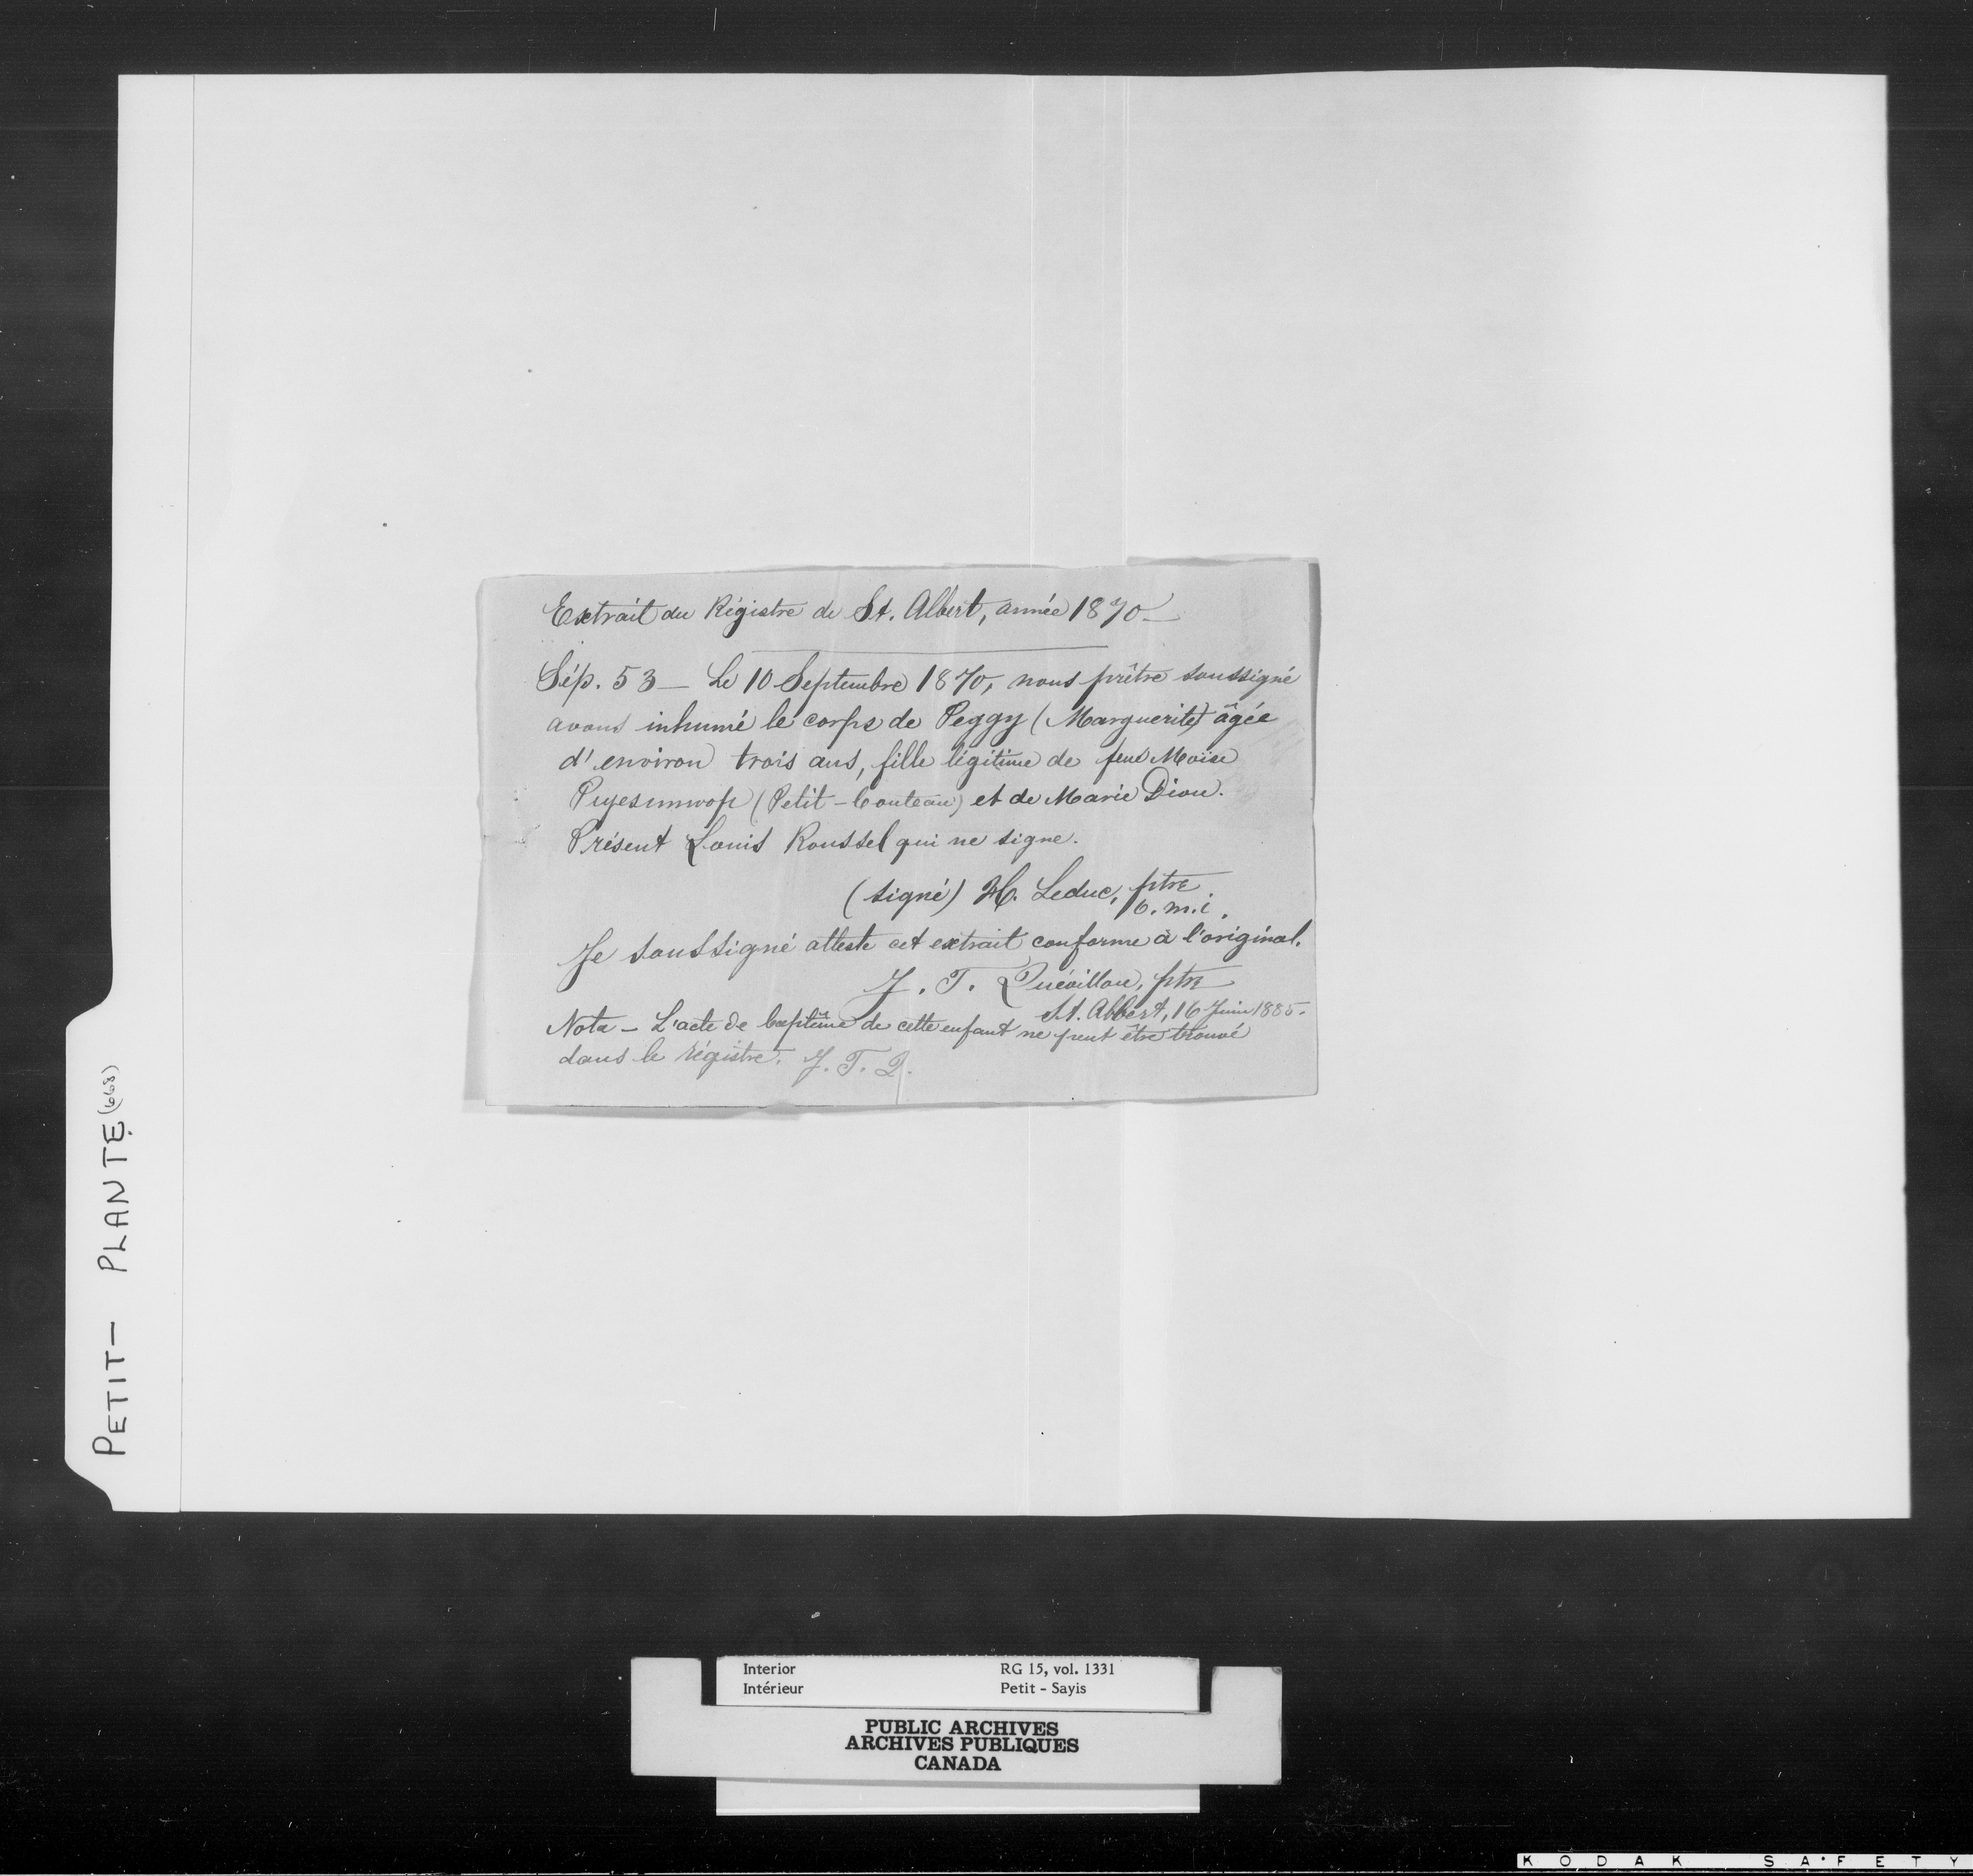 Extrait du Régistre de St. Albert, année 1870 —
Sép. 53 — Le 10 Septembre 1870, nous prêtre soussigné
avons inhumé le corps de Peggy (Marguerite) âgée
d'environ trois ans, fille légitime de feu Moïse
(Petit-Couteau) et de Marie Dion.
Présent Louis Roussel qui ne signe.
(signé) H. Leduc, ptre
o.m.i.
Je soussigné atteste cet extrait conforme à l'original.
J. T. Quévillon, ptre
St. Albert, 16 Juin 1885.
Nota — L'acte de baptême de cette enfant ne peut être trouvé
dans le régistre. J. T. Q.
PETIT — PLANTE (668)
Interior RG 15, vol. 1331
Intérieur Petit - Sayis
PUBLIC ARCHIVES
ARCHIVES PUBLIQUES
CANADA
KODAK SAFETY